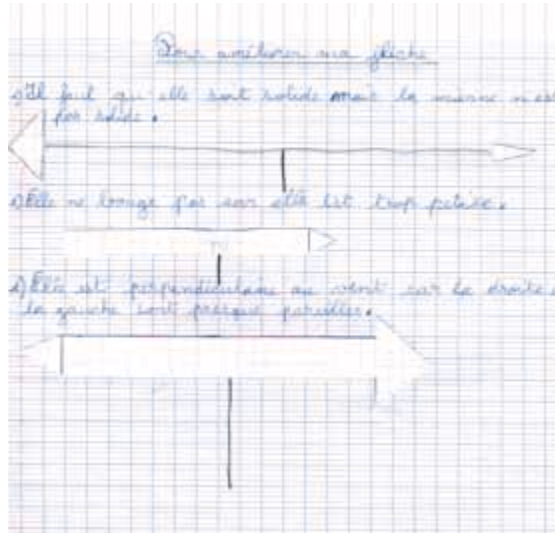 Pour améliorer ma flèche
Il faut qu'elle soit solide mais la mienne n'est
pas solide.
Elle ne bouge pas car elle est trop petite.
Elle est perpendiculaire au vent car la droite
la gauche sont presque pareilles.